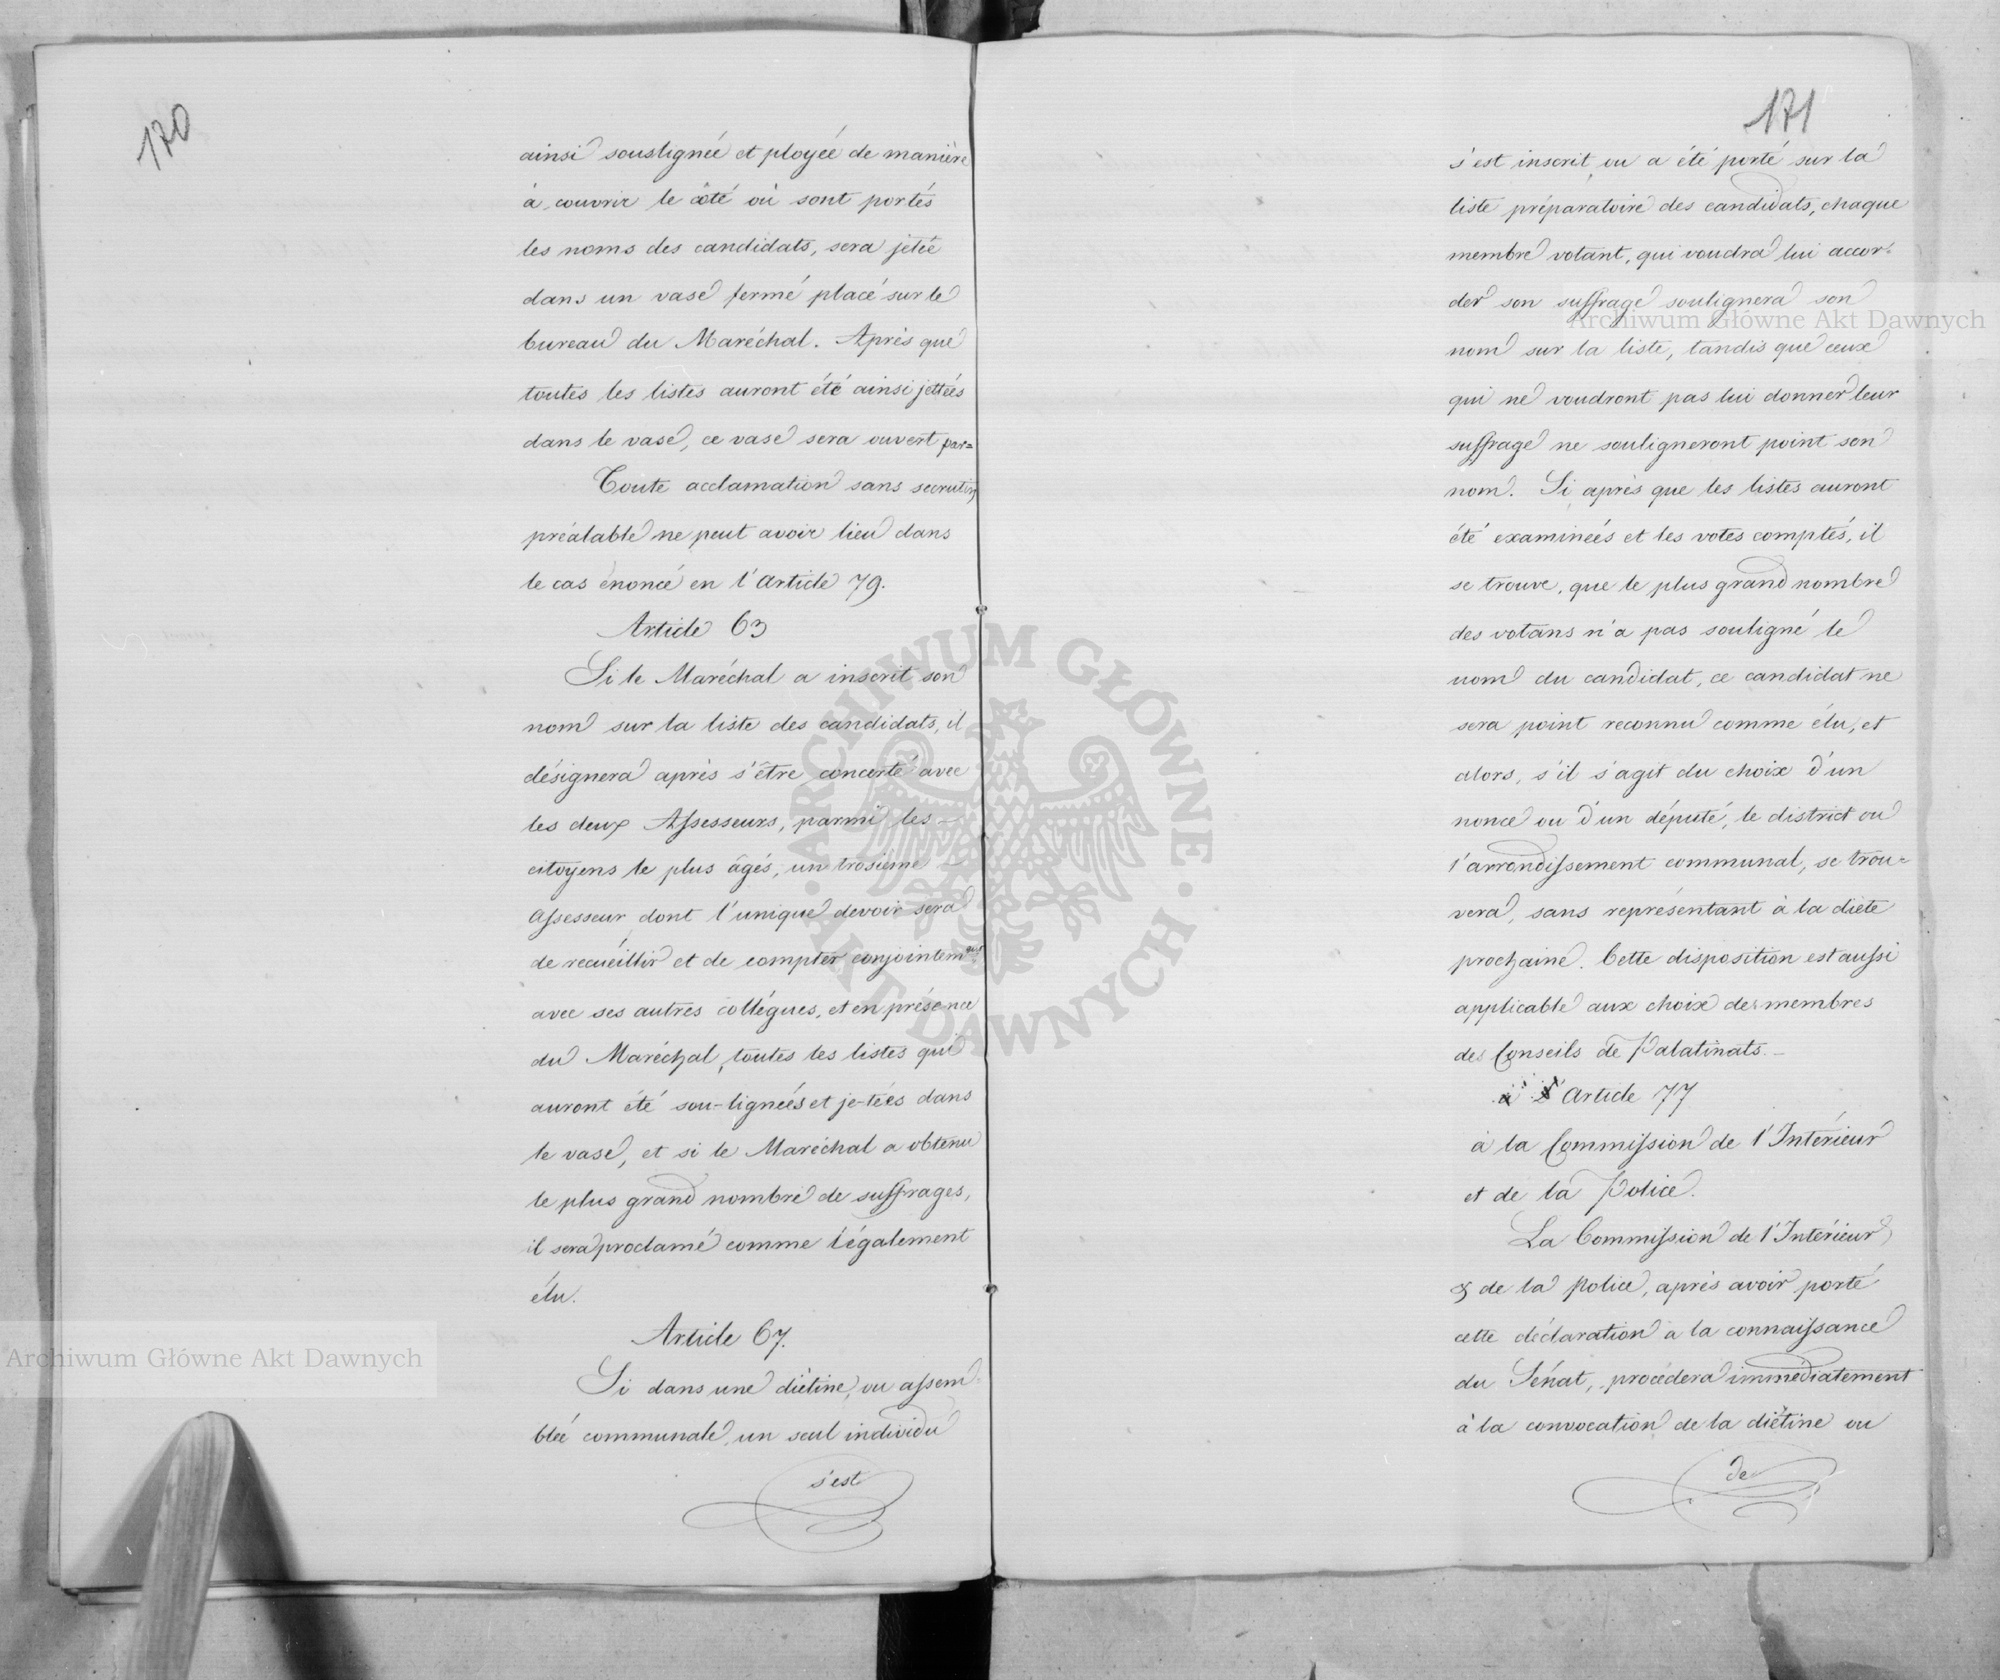 170
ainsi souslignée et ployée de manière
à couvrir le côté où sont portés
les noms des candidats, sera jetée
dans un vase fermé placé sur le
bureau du Maréchal. Après que
toutes les listes auront été ainsi jettées
dans le vase, ce vase sera ouvert par=
Toute acclamation sans scrutin
préalable ne peut avoir lieu dans
le cas énoncé en l'Article 79.
Article 63
Si le Maréchal a inscrit son
nom sur la liste des candidats, il
désignera après s'être concerté avec
les deux Assesseurs, parmi les –
citoyens le plus âgés, un trosième –
Assesseur dont l'unique devoir sera
de recueillir et de compter conjointem
avec ses autres collégues, et en présence
du Maréchal, toutes les listes qui
auront été sou-lignées et je-tées dans
le vase, et si le Maréchal a obtenu
le plus grand nombre de suffrages,
il sera proclamé comme légalement
élu.
Article 67.
Si dans une diètine, ou assem-
blée communale, un seul individu
s'est
171
s'est inscrit, ou a été porté sur la
liste préparatoire des candidats, chaque
membre votant, qui voudra lui accor-
der son suffrage soulignera son
nom sur la liste, tandis que ceux
qui ne voudront pas lui donner leur
suffrage ne souligneront point son
nom. Si après que les listes auront
été examinées et les votes comptés, il
se trouve, que le plus grand nombre
des votans n'a pas souligné le
nom du candidat, ce candidat ne
sera point reconnu comme élu, et
alors, s'il s'agit du choix d'un
nonce ou d'un député, le district ou
l'arrondissement communal, se trou=
vera, sans représentant à la diète
prochaine. Cette disposition est aussi
applicable aux choix des membres
des Conseils de Palatinats. –
à l'Article 77
à la Commission de l'Intérieur
et de la Police.
La Commission de l'Intérieur
& de la Police, après avoir porté
cette déclaration a la connaissance
du Sénat, procédera immédiatement
à la convocation de la diètine ou
de
Archiwum Główne Akt Dawnych
Archiwum Główne Akt Dawnych
ARCHIWUM GŁÓWNE · AKT DAWNYCH ·